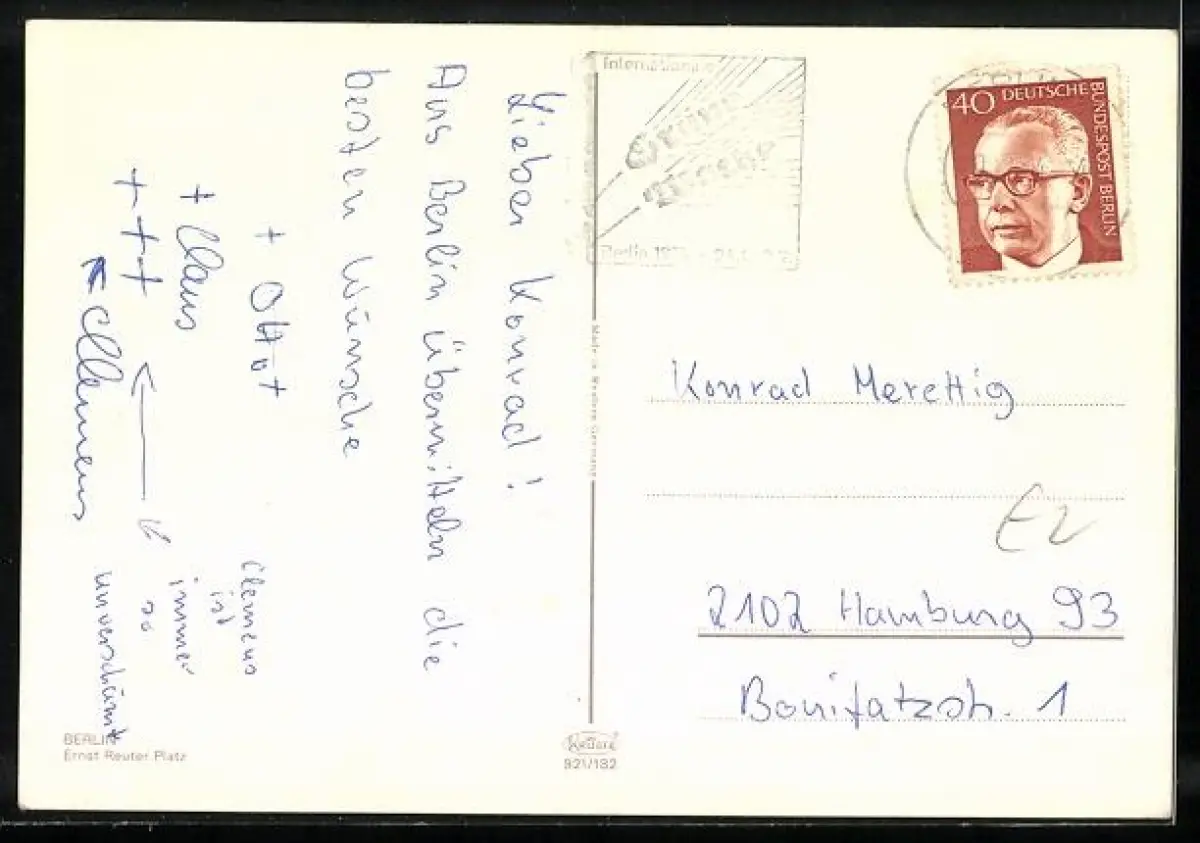 Lieber Konrad!
Aus Berlin übermitteln die
besten Wünsche
+ Otto
+ Claus
+ + +
Clemens
Clemens
ist
immer
so
unverschämt
BERLIN
Ernst Reuter Platz
Made in Western Germany
Kruger
921/182
Internationale
Grüne
Woche
Berlin
40 DEUTSCHE
BUNDESPOST BERLIN
Konrad Merettig
EZ
2102 Hamburg 93
Bonifatzstr. 1